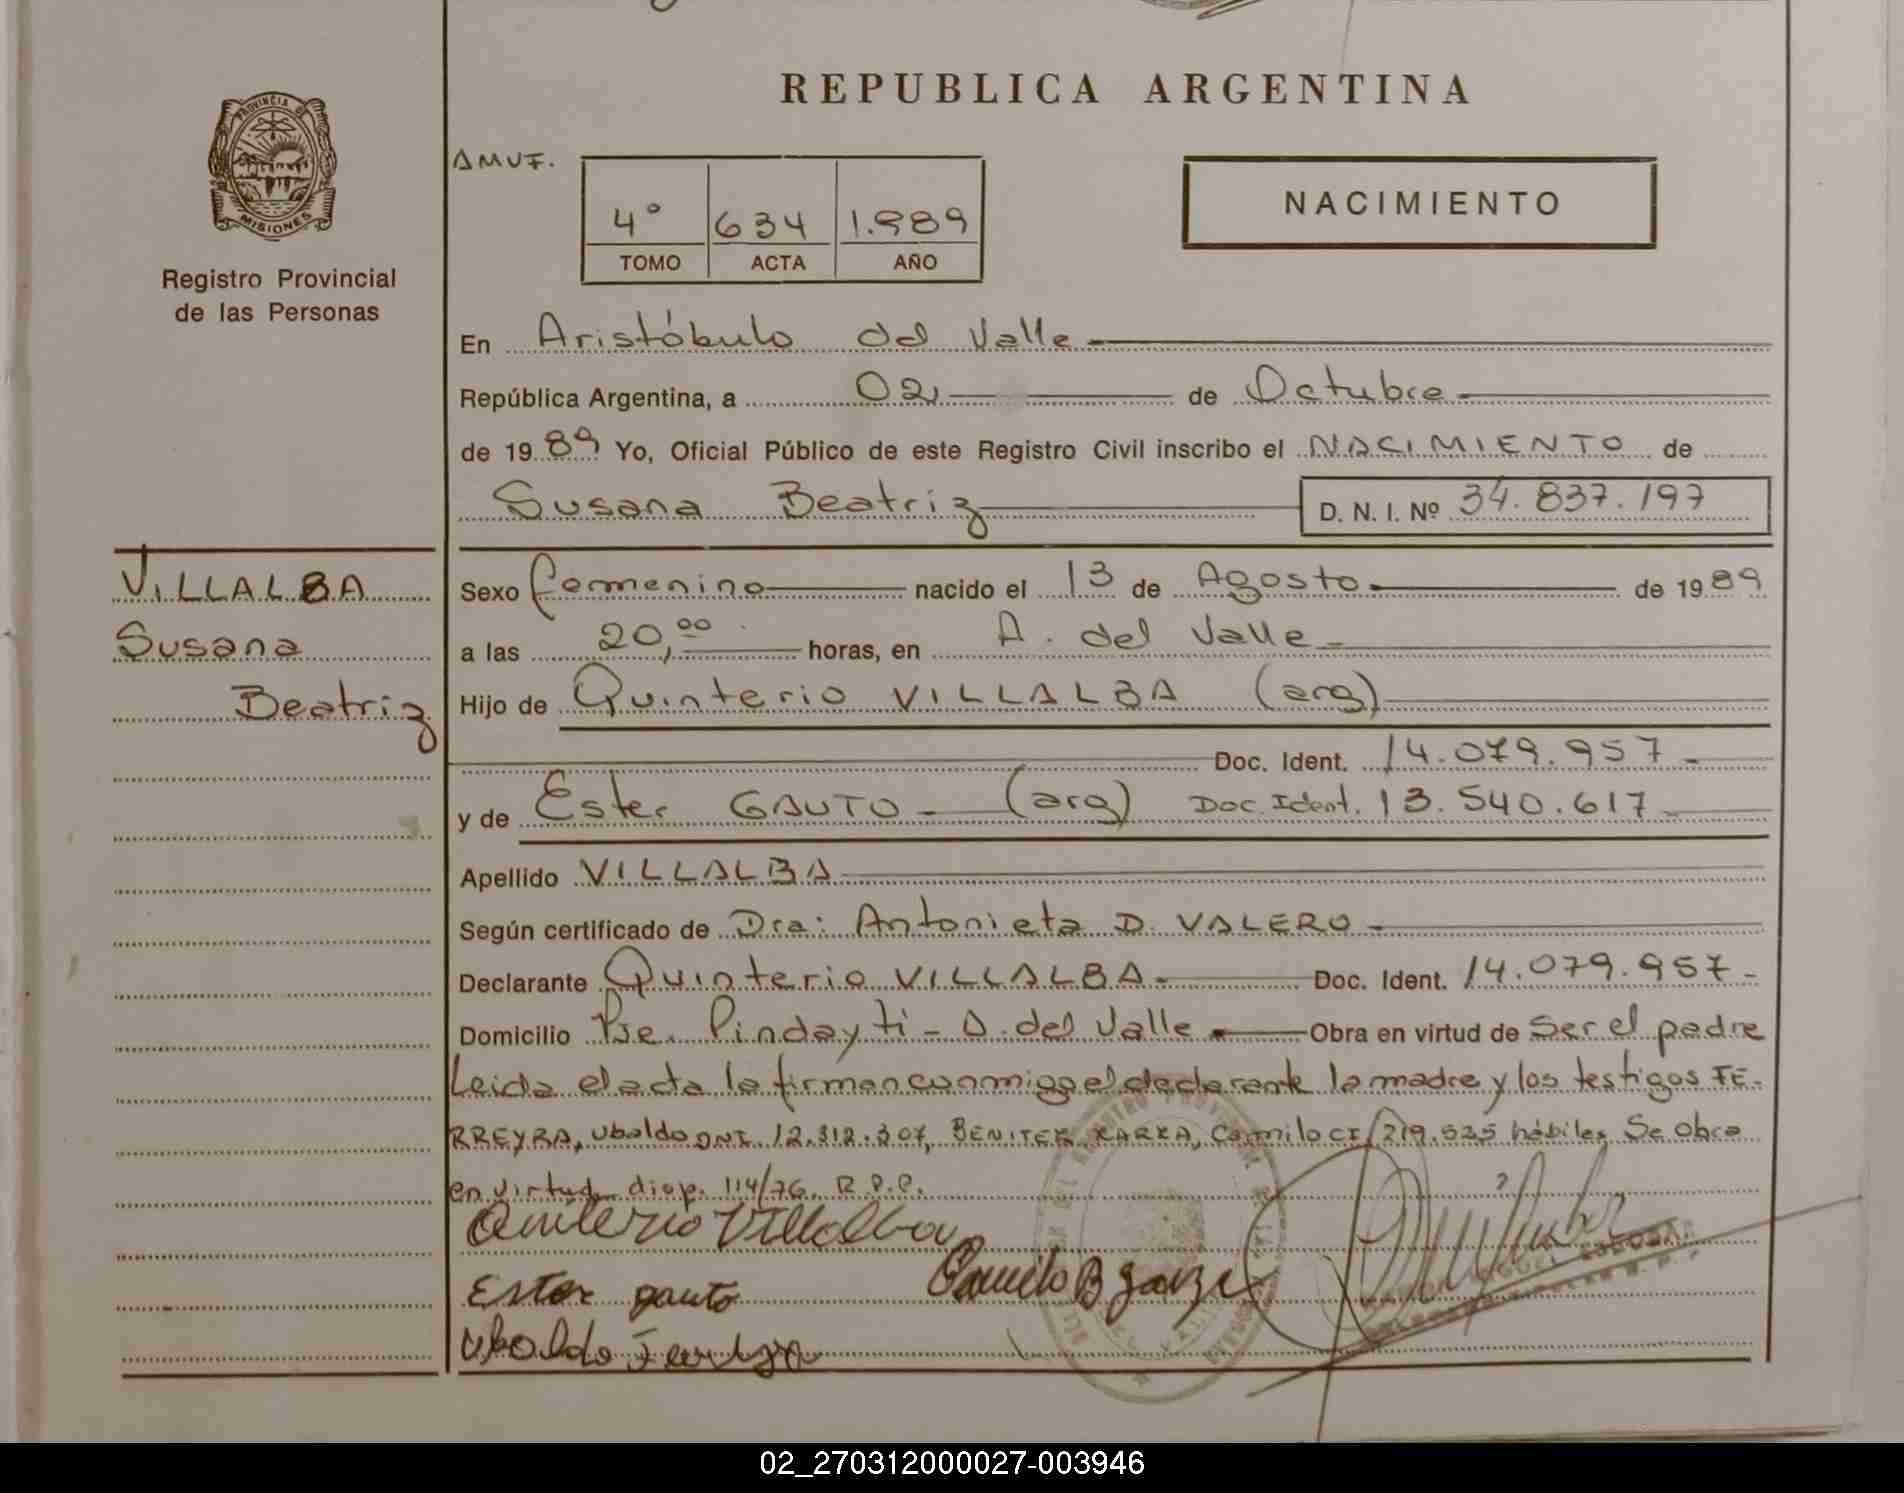 REPUBLICA ARGENTINA
PROVINCIA DE
MISIONES
Registro Provincial
de las Personas
AMUF.
4° 634 1.989
TOMO ACTA AÑO
NACIMIENTO
En Aristóbulo del Valle
República Argentina, a 02 de Octubre
de 1989 Yo, Oficial Público de este Registro Civil inscribo el NACIMIENTO de
Susana Beatriz D. N. I. Nº 34.837.197
VILLALBA
Susana
Beatriz
Sexo femenino nacido el 13 de Agosto de 1989
a las 20,00 horas, en A. del Valle
Hijo de Quinterio VILLALBA (arg)
Doc. Ident. 14.079.957
y de Ester GAUTO (arg) Doc. Ident. 13.540.617
Apellido VILLALBA
Según certificado de Dra: Antonieta D. VALERO
Declarante Quinterio VILLALBA Doc. Ident. 14.079.957
Domicilio Pje. Pindayti - A. del Valle Obra en virtud de Ser el padre
Leida el acta la firman conmigo el declarante la madre y los testigos FE-
RREYRA, Ubaldo DNI 12.312.307, BENITEZ Camilo CI 219.525 hábiles Se obra
en virtud disp. 114/76 R.P.P.
Quiterio Villalba
Camilo B
Ester gauto
Ubaldo Ferreyra
02_270312000027-003946